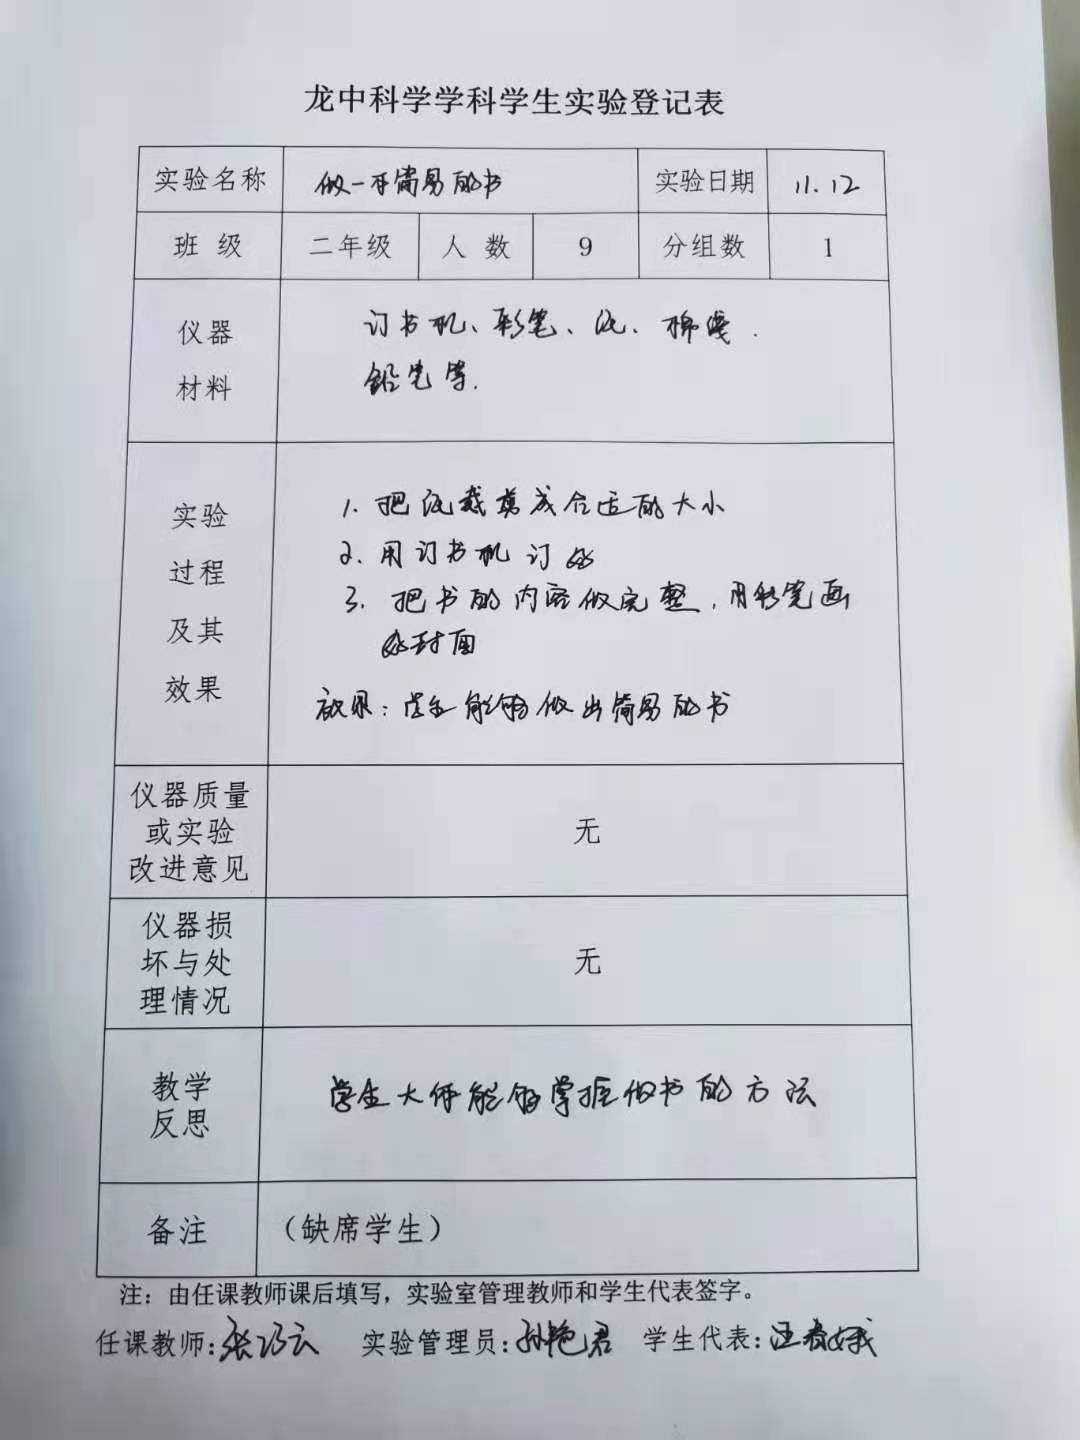 龙中科学学科学生实验登记表
实验名称 做一本简易的书 实验日期 11.12
班 级 二年级 人 数 9 分组数 1
仪器
材料
订书机、彩笔、纸、棉线.
铅笔等.
实验
过程
及其
效果
1. 把纸裁剪成合适的大小
2. 用订书机订好
3. 把书的内容做完整,用彩笔画
好封面
效果:学生能够做出简易的书
仪器质量
或实验
改进意见
无
仪器损
坏与处
理情况
无
教学
反思
学生大体能够掌握做书的方法
备注 (缺席学生)
注:由任课教师课后填写,实验室管理教师和学生代表签字。
任课教师:张巧云 实验管理员:孙艳君 学生代表:汪春娥